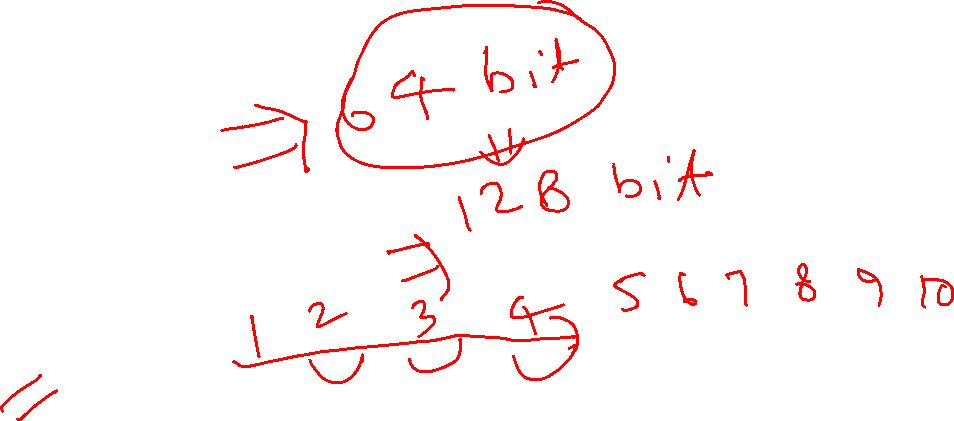 ⇒ 64 bit
⇓
128 bit
⇒
1 2 3 4 5 6 7 8 9 10
=